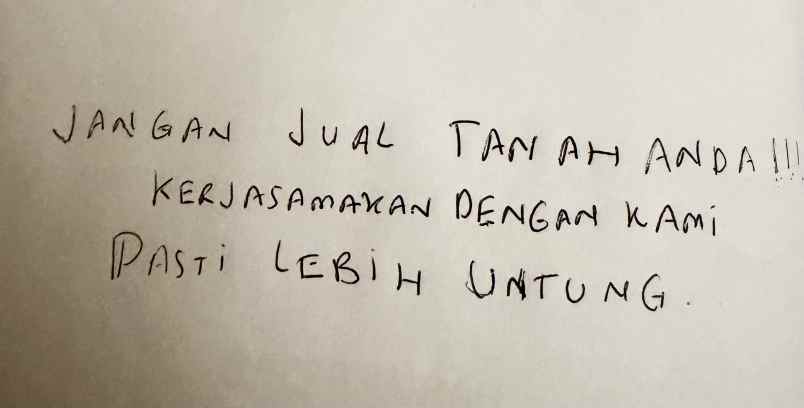 JANGAN JUAL TANAH ANDA!!!
KERJASAMAKAN DENGAN KAMi
PASTi LEBiH UNTUNG.